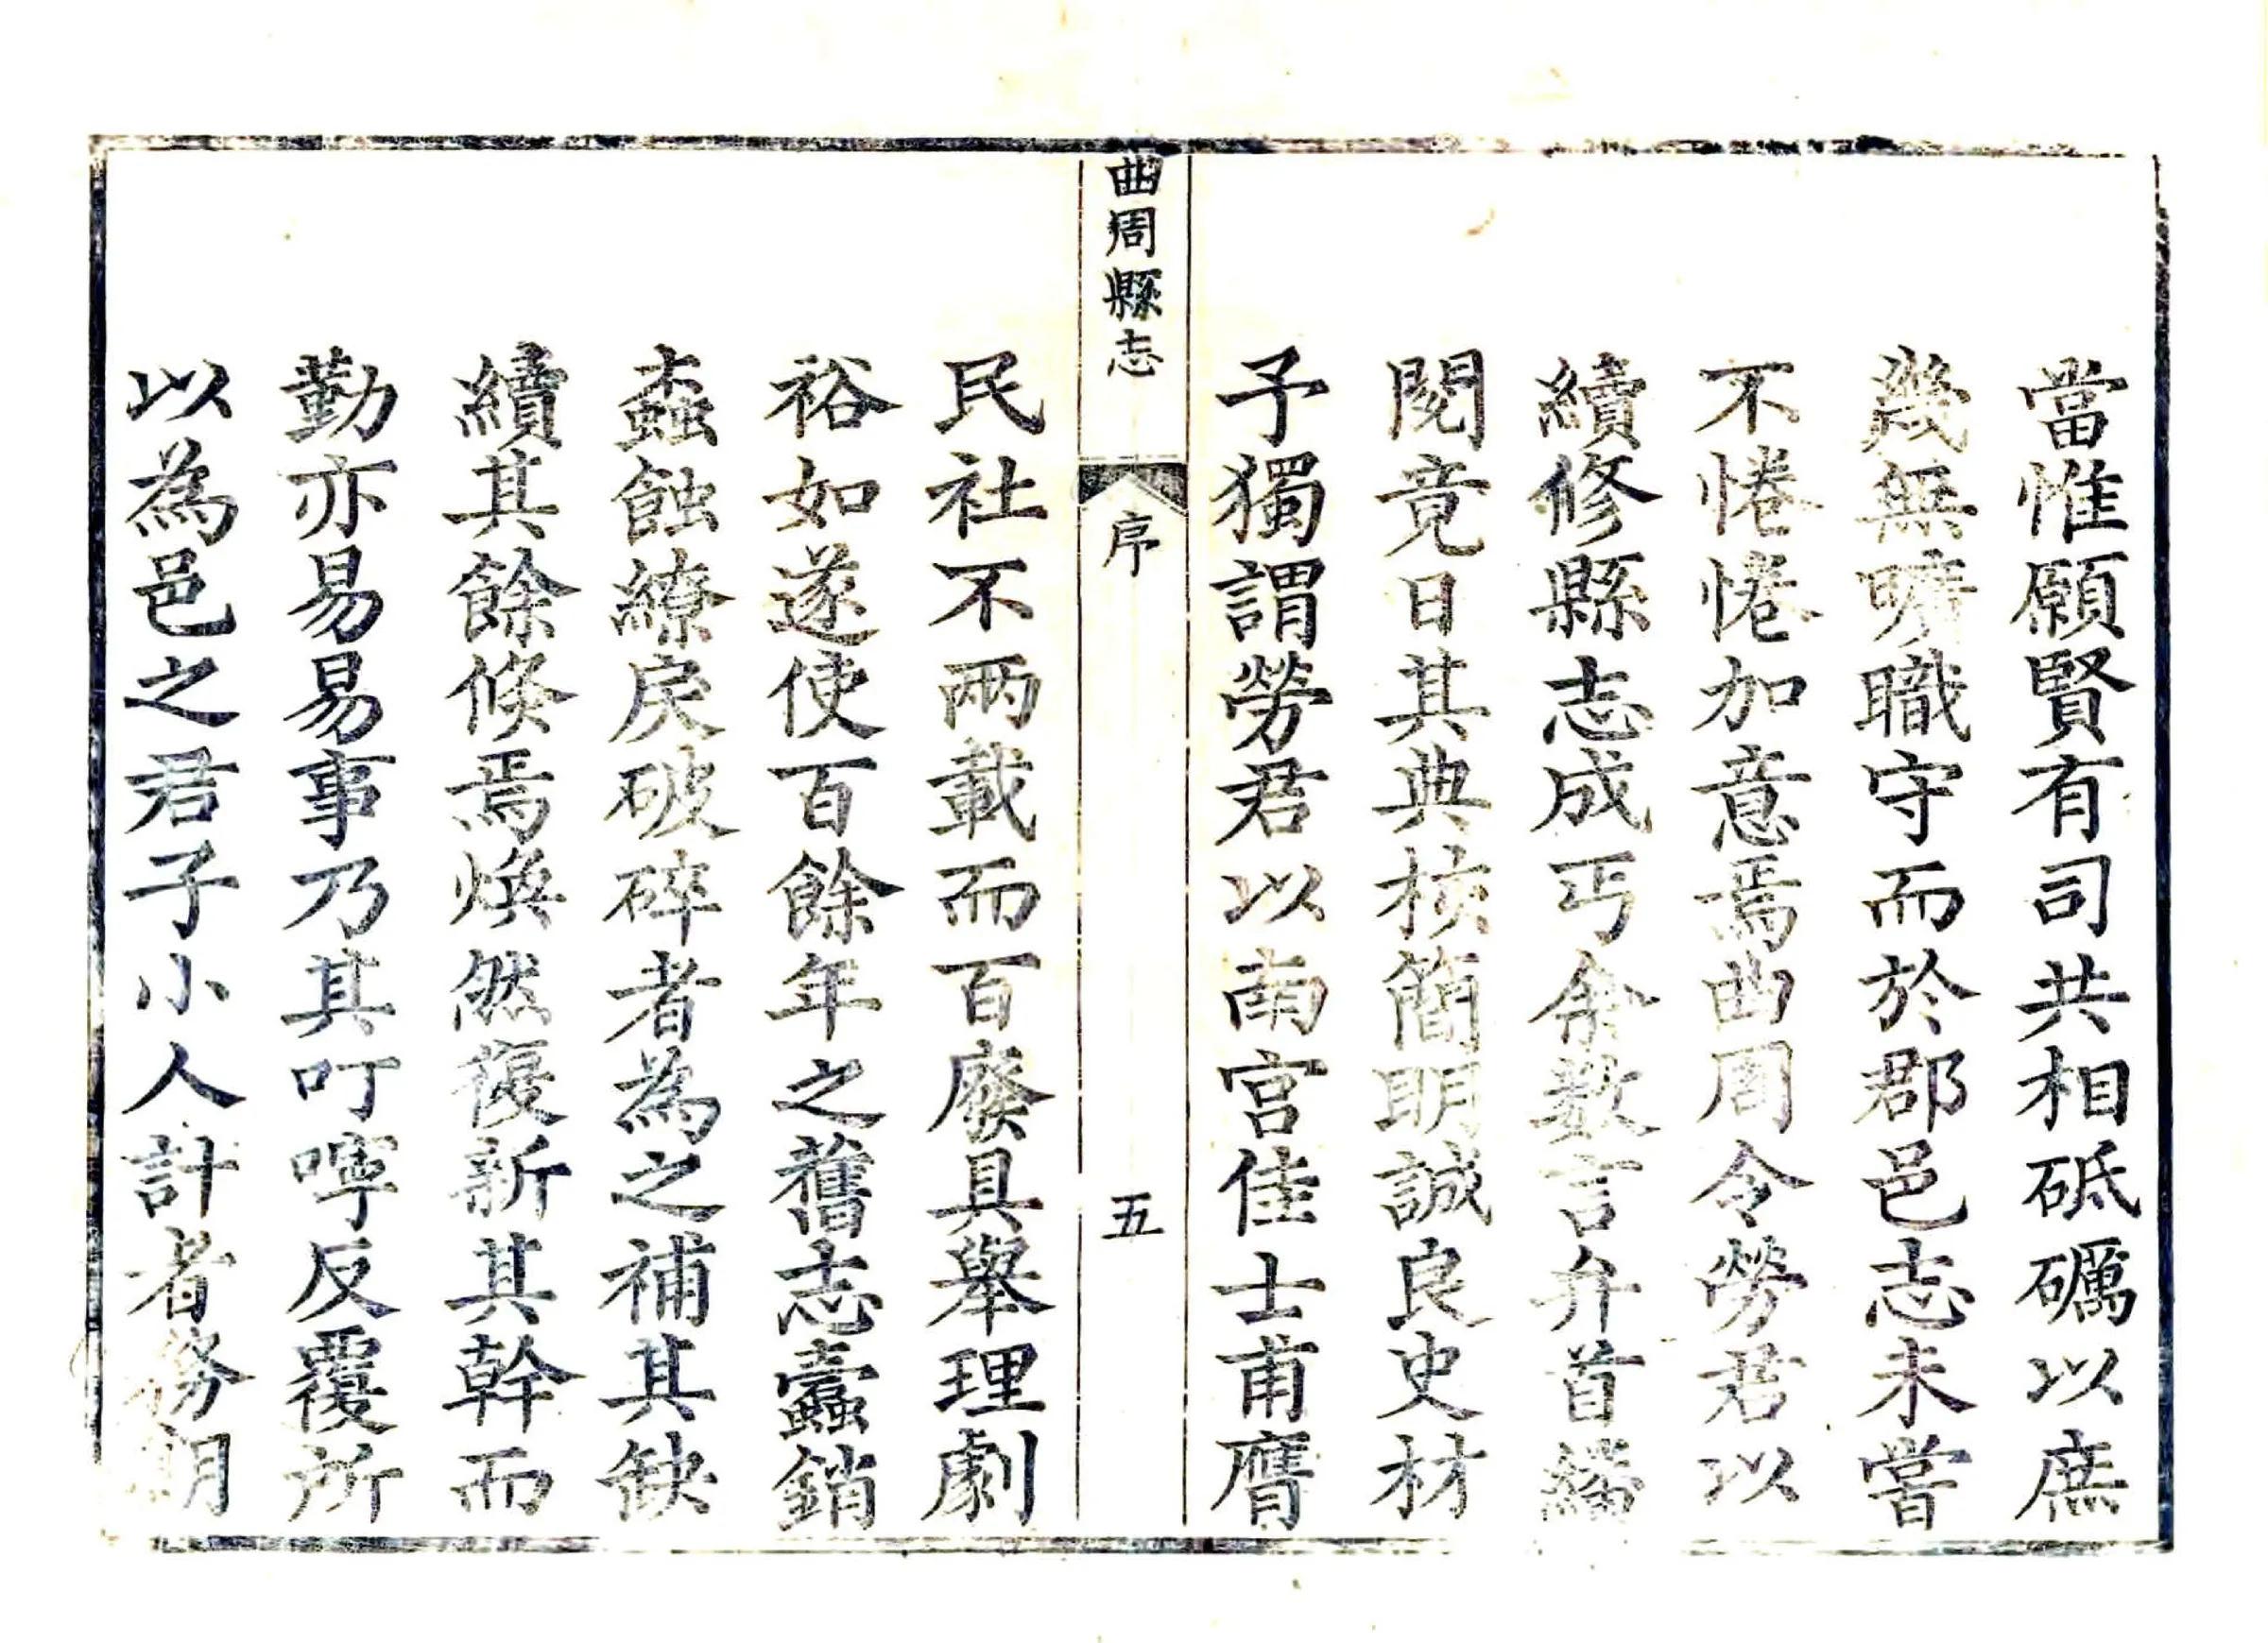 當惟願賢有司共相砥礪以庶
幾無曠職守而於郡邑志未嘗
不惓惓加意焉曲周令勞君以
續修縣志成丐余數言弁首繙
閱竟日其典核簡明誠良史材
予獨謂勞君以南宮佳士甫膺
曲周縣志
序
五
民社不兩載而百廢具舉理劇
裕如遂使百餘年之舊志蠹銷
蟊蝕繚戾破碎者為之補其缺
續其餘倏焉煥然復新其幹而
勤亦易易事乃其叮嚀反覆所
以為邑之君子小人計者務期